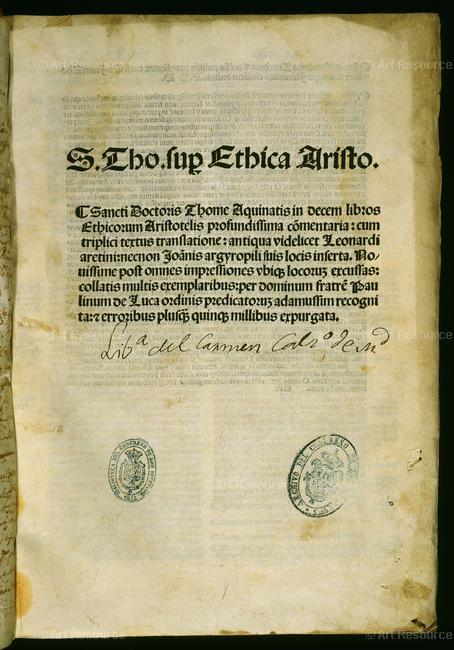 S. Tho. sup Ethica Aristo.
¶ Sancti Doctoris Thome Aquinatis in decem libros
Ethicorum Aristotelis profundissima cōmentaria: cum
triplici textus translatione: antiqua videlicet Leonardi
aretini: necnon Joānis argyropili suis locis inserta. No-
uissime post omnes impressiones vbiqꝫ locoruꝫ excussas:
collatis multis exemplaribus: per dominum fratrē Pau
linum de Luca ordinis predicatoruꝫ adamussim recogni
ta: ⁊ erroribus plusqꝫ quinqꝫ millibus expurgata.
Libª del Carmen Calzº de Md
BIBLIOTECA DEL CONGRESO
ARCHIVO DEL CONGRESO
© Art Resource